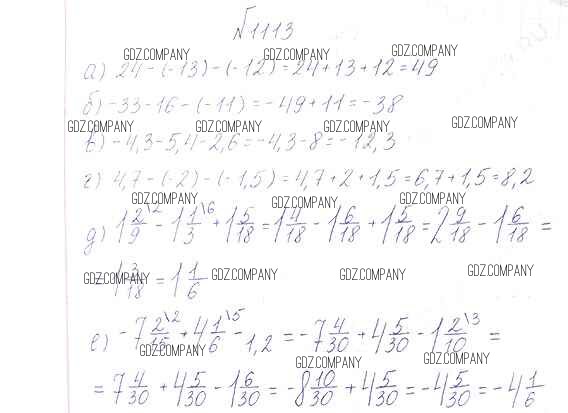 №1113
GDZ.COMPANY GDZ.COMPANY GDZ.COMPANY
а) 24-(-13)-(-12)=24+13+12=49
б) -33-16-(-11)=-49+11=-38
GDZ.COMPANY GDZ.COMPANY GDZ.COMPANY GDZ.COMPANY
в) -4,3-5,4-2,6=-4,3-8=-12,3
г) 4,7-(-2)-(-1,5)=4,7+2+1,5=6,7+1,5=8,2
GDZ.COMPANY GDZ.COMPANY GDZ.COMPANY
д) 1 2/9\2 - 1 1/3\6 + 1 5/18 = 1 4/18 - 1 6/18 + 1 5/18 = 2 9/18 - 1 6/18 =
= 1 3/18 = 1 1/6
GDZ.COMPANY GDZ.COMPANY GDZ.COMPANY GDZ.COMPANY
е) -7 2/15\2 + 4 1/6\5 - 1,2 = -7 4/30 + 4 5/30 - 1 2/10\3 =
GDZ.COMPANY GDZ.COMPANY GDZ.COMPANY
= 7 4/30 + 4 5/30 - 1 6/30 = -8 10/30 + 4 5/30 = -4 5/30 = -4 1/6